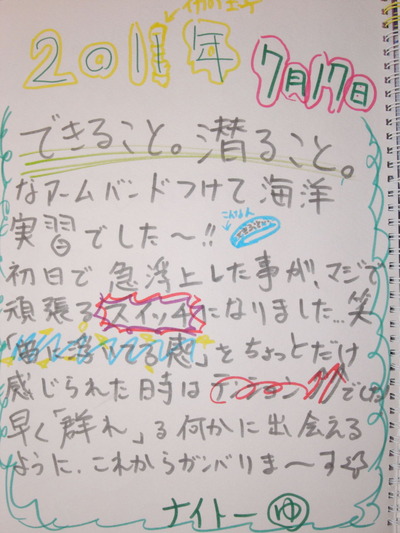 2011年
7月17日
できること。潜ること。
なアームバンドつけて海洋
こんなん
実習でした〜!!
初日で急浮上した事が、マジで
頑張るスイッチになりました…笑
に浮いてる感」をちょっとだけ
感じられた時はテンションでした
早く「群れ」る何かに出会える
ように、これからガンバりま〜す
ナイトー ゆ